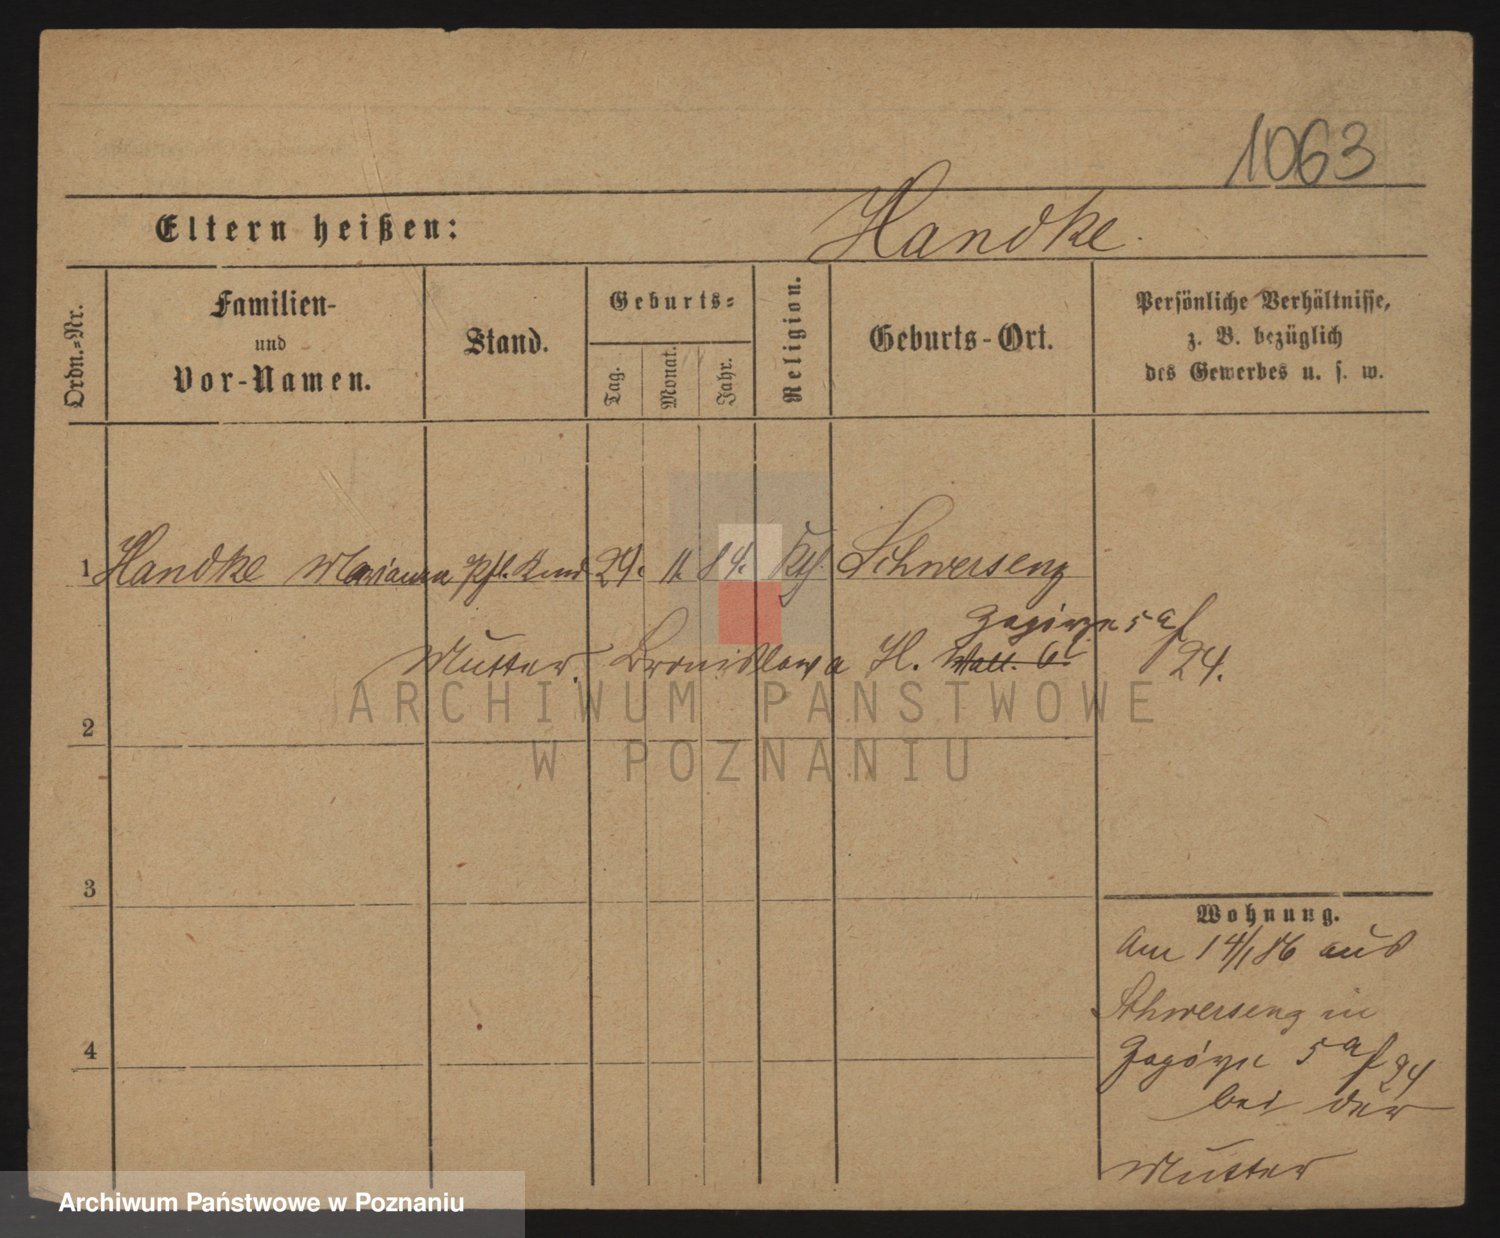 1063
Eltern heißen: Handke.
Ordn.-Nr.
Familien-
und
Vor-Namen.
Stand.
Geburts-
Tag.
Monat.
Jahr.
Religion.
Geburts-Ort.
Persönliche Verhältnisse,
z. B. bezüglich
des Gewerbes u. s. w.
1 Handke Marianna Pfl. Kind 24. 11. 84. Kth. Schwersenz
Zagórze 5 a/
Mutter. Bronislawa H. Wall. 24.
ARCHIWUM PAŃSTWOWE
2
W POZNANIU
3
Wohnung.
Am 14/1 86 aus
Schwersenz in
4
Zagórze 5 a/24
bei der
Mutter
Archiwum Państwowe w Poznaniu